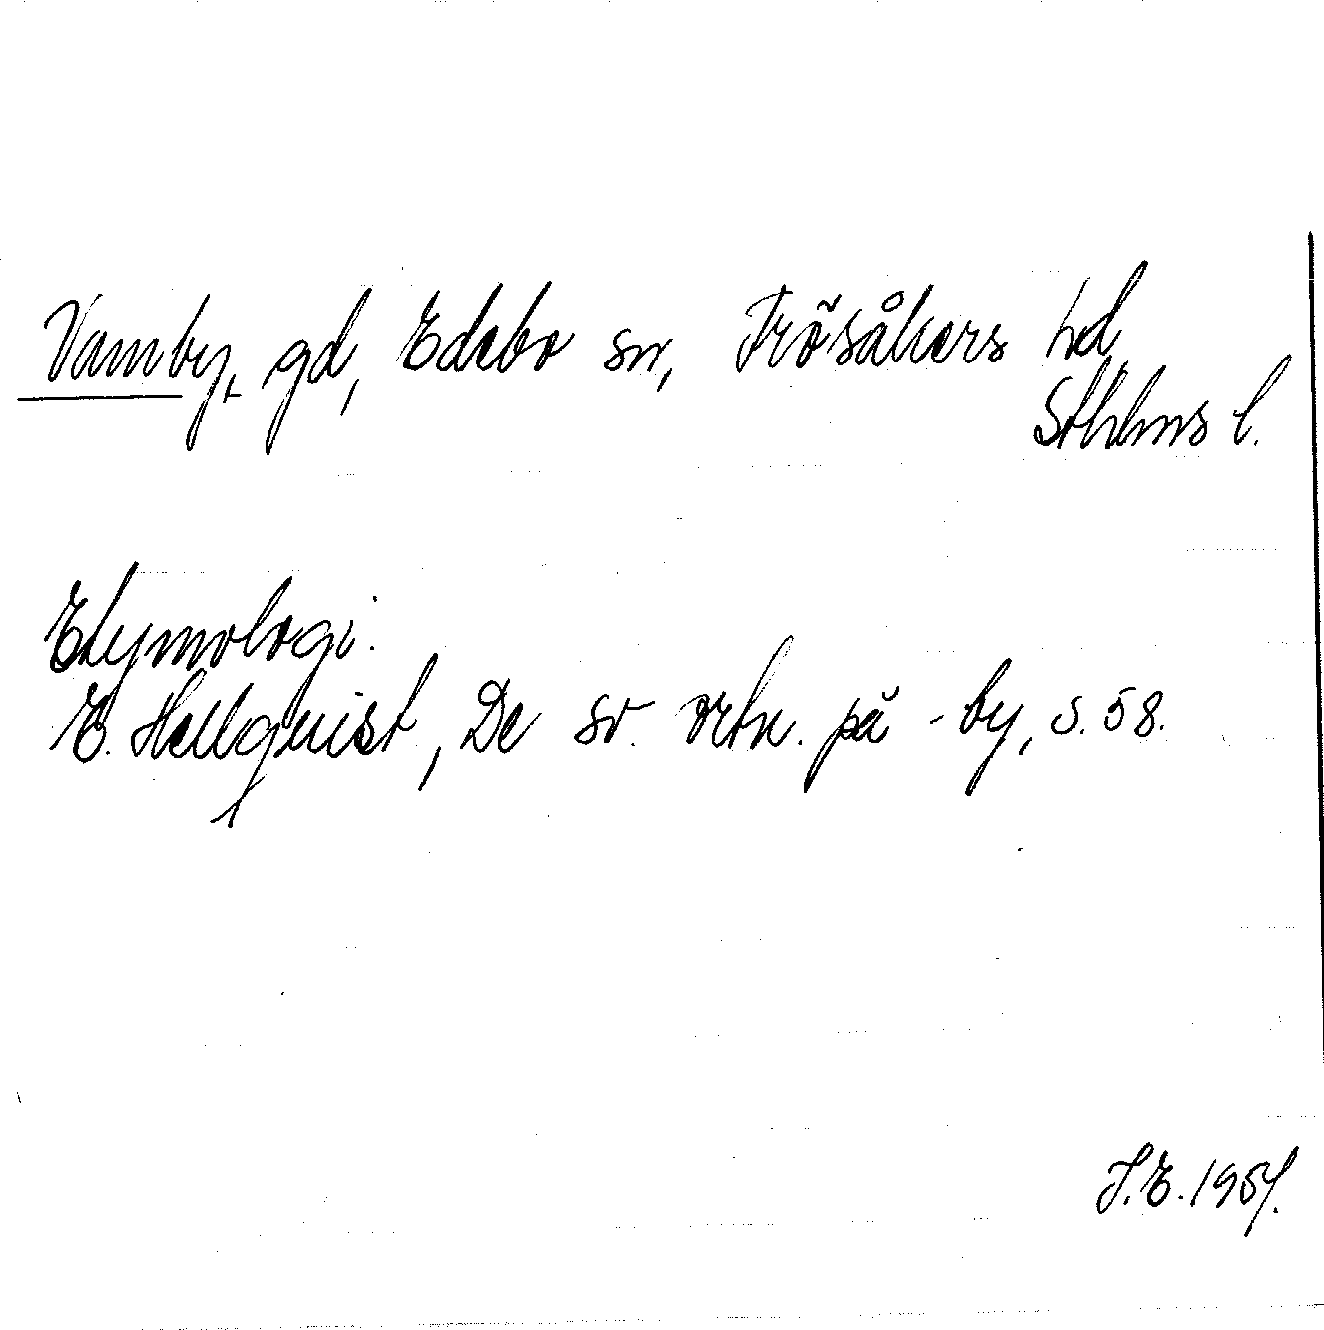 Vamby, gd, Edebo sn, Frösåkers hd,
Sthlms l.
Etymologi.
E. Hellquist, De sv. ortn. på -by, s. 58.
S.E. 1957.